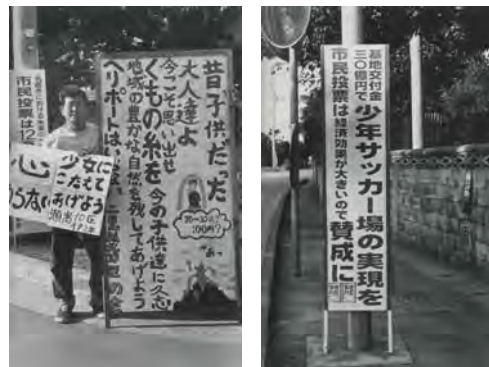 市民投票は12
心
らない
少女に
こたえて
あげよう
昔子供だった
大人達よ
今こそ思い出せ
くもの糸を 今の子供達に久志
地域の豊かな自然を残してあげよう
ヘリポートは
基地交付金
三〇億円で
少年サッカー場の実現を
市民投票は経済効果が大きいので賛成に